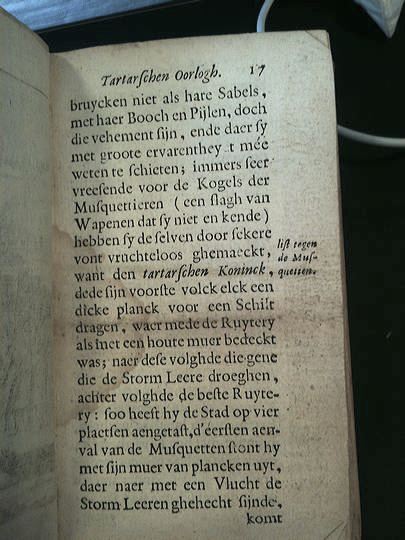 Tartarſchen Oorlogh. 17
bruycken niet als hare Sabels,
met haer Booch en Pijlen, doch
die vehement ſijn, ende daer ſy
met groote ervarenthey t mée
weten te ſchieten; immers ſeer
vreeſende voor de Kogels der
Muſquettieren (een ſlagh van
Wapenen dat ſy niet en kende)
hebben ſy de ſelven door ſekere
vont vruchteloos ghemaeckt,
liſt tegen
de Muſ-
quetten.
want den tartarſchen Koninck,
dede ſijn voorſte volck elck een
dicke planck voor een Schilt
dragen, waer mede de Ruytery
als met een houte muer bedeckt
was; naer deſe volghde die gene
die de Storm Leere droeghen,
achter volghde de beſte Ruyte-
ry: ſoo heeft hy de Stad op vier
plaetſen aengetaſt, d'éerſten aen-
val van de Muſquetten ſtont hy
met ſijn muer van plancken uyt,
daer naer met een Vlucht de
Storm Leeren ghehecht ſijnde,
komt